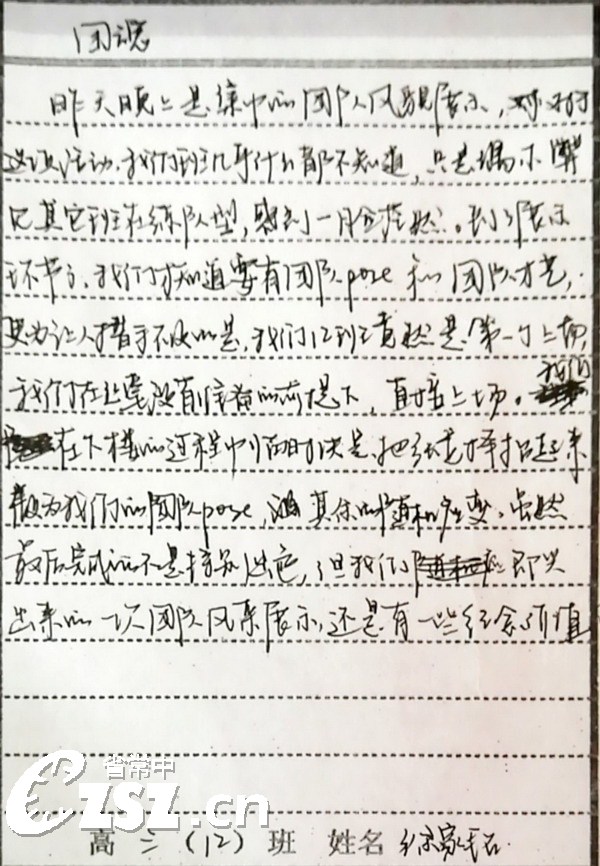 团魂
昨天晚上是集中的团队风貌展示,对于
这次活动,我们班几乎什么都不知道,只是偶尔瞥
见其它班在练队型,感到一片茫然。到了展示
环节了,我们才知道要有团队pose和团队才艺,
更为让人措手不及的是,我们12班竟然是第一个上场,
我们在毫没有准备的前提下,直接上场。我们
在下楼的过程中临时决定,把举起来
做为我们的团队pose,其余的随机应变。虽然
最后完成的不是特别出色,但我们即兴
出来的一次团队风采展示,还是有一些纪念价值
省常中
CZSZ.cn
高三(12)班 姓名 徐家